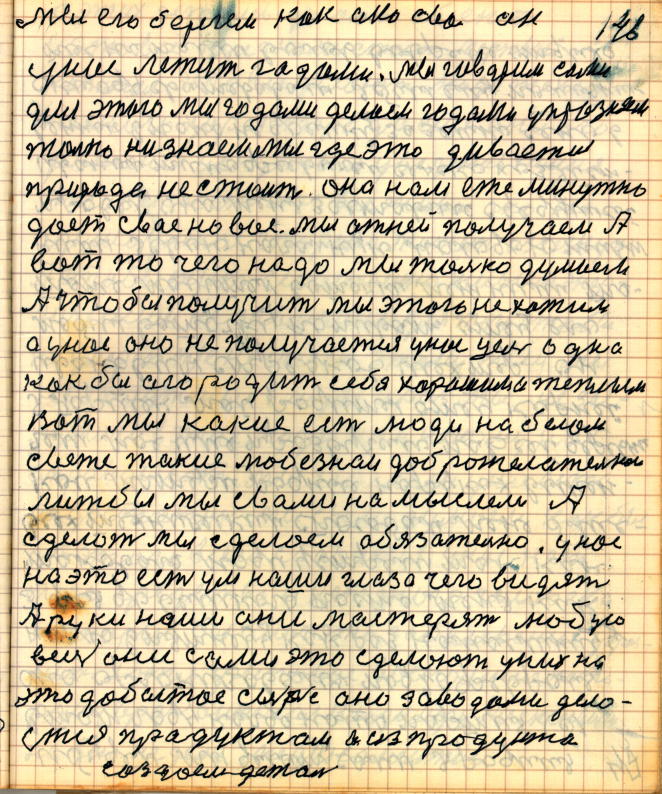 мы его бергем как око сво он 146
унас летут гадами. мы говарим сами
для этого мы годами делаем годами упразняем
толко низнаем мы где это дивается
природа нестоит. она нам ежеминутно
дает свае новое. мы отней получаем А
вот то чего надо мы толко думаем
А чтобы получит мы этого не хотим
а унас оно неполучается унас цел одна
как бы огородит себя хорошим и теплим
вот мы какие ест люди на белом
свете такие любезнаи доброжелателнаи
лит бы мы свами на мыслем А
сделат мы сделоем обязателно. унас
на это ест ум наши глаза чего видят
А руки наши они мастерят любую
вещ они сами это сделоют уних на
это добытое сырё оно заводами дело-
стся продуктам а из продукта
создоем детал